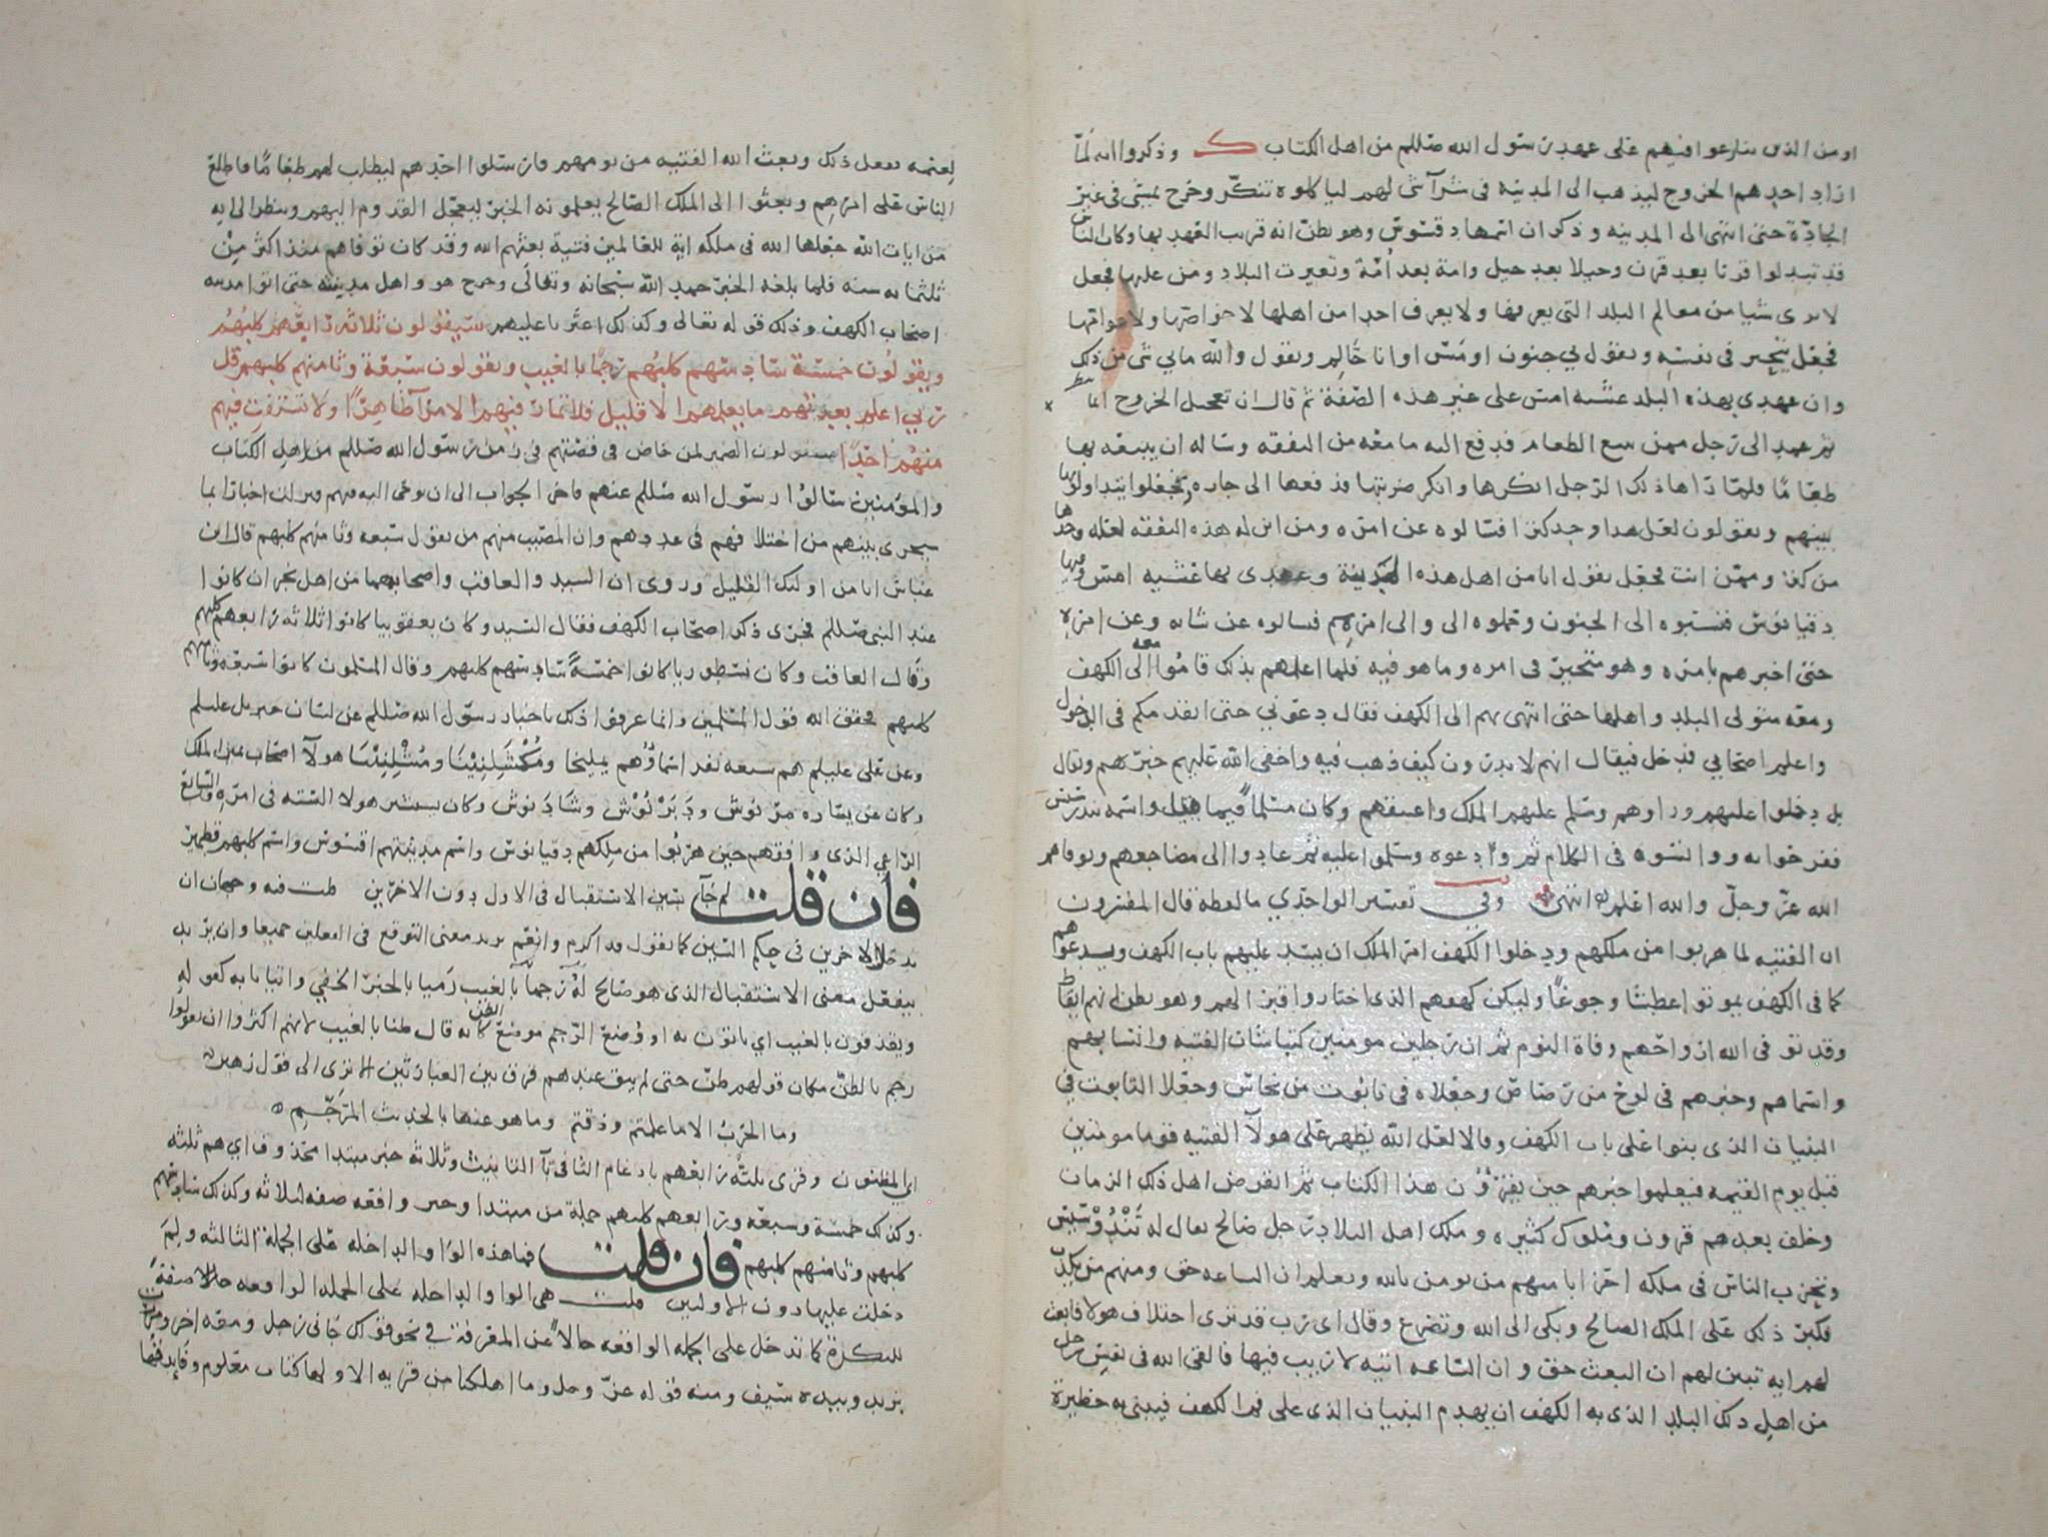 او من الذين تنازعوا فيهم على عهد رسول الله صللم من اهل الكتاب ك وذكروا انه لما
اراد احدهم الخروج ليذهب الى المدينه فى شرآ شى لهم لياكلوه تنكّر وخرج يمشى فى غير
الجادّة حتى انتهى الى المدينه وذكر ان اسمها دقسوس وهو يظن انه قريب العهد بها وكان الناس
قد تبدلوا قرنا بعد قرن وجيلا بعد جيل وامة بعد اُمّة وتغيرت البلاد ومن عليها فجعل
لا يرى شيا من معالم البلد التى يعرفها ولا يعرف احدا من اهلها لا خواصها ولا عوامّها
فجعل يتحير فى نفسه ويقول لي جنون او مَسّ او انا حُالِم ويقول والله ما بي شى من ذلك
وان عهدى بهذه البلد عشيه امس على غير هذه الصّفة ثم قال ان تعجيل الخروج
ثم عمد الى رجل ممن يبيع الطعام فدفع اليه ما معه من النفقه وساله ان يبيعه بها
طعاما فلمّا رآها ذلك الرّجل انكرها وانكر ضربها فدفعها الى جاره فجعلوا يتداولونها
بينهم ويقولون لعل هذا وجد كنزا فسالوه عن امره ومن اين له هذه النفقه لعله وجدها
من كنز وممّن انت فجعل يقول انا من اهل هذه المدينة وعهدى بها عشيه امس وفيها
دقيانوس فنسبوه الى الجنون وحملوه الى والى امرهم فسالوه عن شانه وعن امره
حتى اخبرهم بامره وهو متحيّر فى امره وما هو فيه فلما اعلمهم بذلك قاموا معه الى الكهف
ومعه متولى البلد واهلها حتى انتهى بهم الى الكهف فقال دعوني حتى اتقدمكم فى الدخول
واعلم اصحابي فدخل فيقال انهم لا يدرون كيف ذهب فيه واخفى الله عليهم خبرهم ويقال
بل دخلوا عليهم وراوهم وسلم عليهم الملك واعتنقهم وكان مسلمًا فيما قيل واسمه تندوسيس
ففرحوا به وآنسوه فى الكلام ثم ودعوه وسلموا عليه ثم عادوا الى مضاجعهم وتوفاهم
الله عزّ وجلّ والله اعلم انتهى وفي تفسير الواحدي ما لفظه قال المفسرون
ان الفتيه لما هربوا من ملكهم ودخلوا الكهف امر الملك ان يسد عليهم باب الكهف ويدعوهم
كما فى الكهف يموتوا عطشا وجوعًا وليكن كهفهم الذى اختاروا قبرا لهم وهو يظن انهم ايقاظ
وقد توفى الله ارواحهم وفاة النوم ثم ان رجلين مومنين كتبا شان الفتيه وانسابهم
واسماهم وخبرهم فى لوح من رصاص وجعلاه فى تابوت من نحاس وجعلا التابوت في
البنيان الذى بنوا على باب الكهف وقالا لعل الله يظهر على هولآ الفتيه قوما مومنين
قبل يوم القيمه فيعلموا خبرهم حين يقرؤن هذا الكتاب ثم انقرض اهل ذلك الزمان
وخلف بعدهم قرون وملوك كثيره وملك اهل البلاد رجل صالح يقال له تندوسيس
وتحزب الناس فى ملكه احزابا منهم من يومن بالله ويعلم ان الساعه حق ومنهم من يكذب
فكبر ذلك على الملك الصالح وبكى الى الله وتضرع وقال اى رب قد ترى اختلاف هولا فابعث
لهم ايه تبين لهم ان البعث حق وان الساعه اتيه لا ريب فيها فالقى الله فى نفس رجل
من اهل ذلك البلد الذى به الكهف ان يهدم البنيان الذى على فم الكهف فيبنى به حظيرة
لغنمه ففعل ذلك وبعث الله الفتيه من نومهم فارسلوا احدهم ليطلب لهم طعاما فاطلع
الناس على امرهم وبعثوا الى الملك الصالح يعلمونه الخبر ليعجّل القدوم اليهم وينظر الى ايه
من ايات الله جعلها الله فى ملكه اية للعالمين فتية بعثهم الله وقد كان توفاهم منذ اكثر من
ثلثمايه سنه فلما بلغه الخبر حمد الله سبحانه وتعالى وخرج هو واهل مدينته حتى اتوا مدينه
اصحاب الكهف وذلك قوله تعالى وكذلك اعثرنا عليهم سيقولون ثلاثة رابعهم كلبهم
ويقولون خمسة سادسهم كلبهم رجمًا بالغيب ويقولون سبعة وثامنهم كلبهم قل
ربي اعلم بعدتهم ما يعلمهم الا قليل فلا تمار فيهم الا مرآ ظاهرًا ولا تستفت فيهم
منهم احدًا سيقولون الضمير لمن خاض فى قصتهم فى زمن رسول الله صللم من اهل الكتاب
والمؤمنين سالوا رسول الله صللم عنهم فاخر الجواب الى ان يوحى اليه فيهم فنزلت اخبارا بما
سيجرى بينهم من اختلافهم فى عددهم وان المصيب منهم من يقول سبعه وثامنهم كلبهم قال ابن
عباس انا من اولئك القليل وروى ان السيد والعاقب واصحابهما من اهل نجران كانوا
عند النبي صللم فجرى ذكر اصحاب الكهف فقال السيد وكان يعقوبيا كانوا ثلاثه رابعهم كلبهم
وقال العاقب وكان نسطوريا كانوا خمسةً سادسهم كلبهم وقال المسلمون كانوا سبعه وثامنهم
كلبهم فحقق الله قول المسلمين وانما عرفوا ذلك باخبار رسول الله صللم عن لسان جبريل عليلم
وعن على عليلم هم سبعه نفر اسماؤهم يمليخا ومكشلينيا ومشلينيا هولآ اصحاب يمين الملك
وكان عن يساره مرنوش ودبرنوش وشاذنوش وكان يستشير هولا الستة فى امره والسابع
الراعي الذى وافقهم حين هربوا من ملكهم دقيانوس واسم مدينتهم افسوس واسم كلبهم قطمير
فان قلت لم جآ بسين الاستقبال فى الاول دون الاخرين قلت فيه وجهان ان
تدخل الاخرين فى حكم السين كما تقول قد اكرم وانعم تريد معنى التوقع فى الفعلين جميعا وان تريد
بيفعل معنى الاستقبال الذى هو صالح له رجما بالغيب رميا بالخبر الخفي واتيانا به كقوله
ويقذفون بالغيب اي ياتون به او وُضع الرّجم موضع الظن كانه قال ظنا بالغيب لانهم اكثروا ان يقولوا
رجم بالظن مكان قولهم ظن حتى لم يبق عندهم فرق بين العبارتين الا ترى الى قول زهير
وما الحرب الا ما علمتم وذقتم وما هو عنها بالحديث المرجّم
اي المظنون وقرى ثلثّ رابعهم بادغام الثا فى تآ التانيث وثلاثه خبر مبتدا محذوف اي هم ثلثه
وكذلك خمسة وسبعه ورابعهم كلبهم جملة من مبتدا وخبر واقعه صفه لثلاثه وكذلك سادسهم
كلبهم وثامنهم كلبهم فان قلت فما هذه الواو الداخله على الجملة الثالثه ولِمَ
دخلت عليها دون الاولتين قلت هى الواو الداخله على الجمله الواقعه صفةً
للنكرة كما تدخل على الجمله الواقعه حالا عن المعرفة في نحو قولك جانى رجل ومعه اخر ومررت
بزيد وبيده سيف ومنه قوله عزّ وجل وما اهلكنا من قريه الا ولها كتاب معلوم وفايدتها